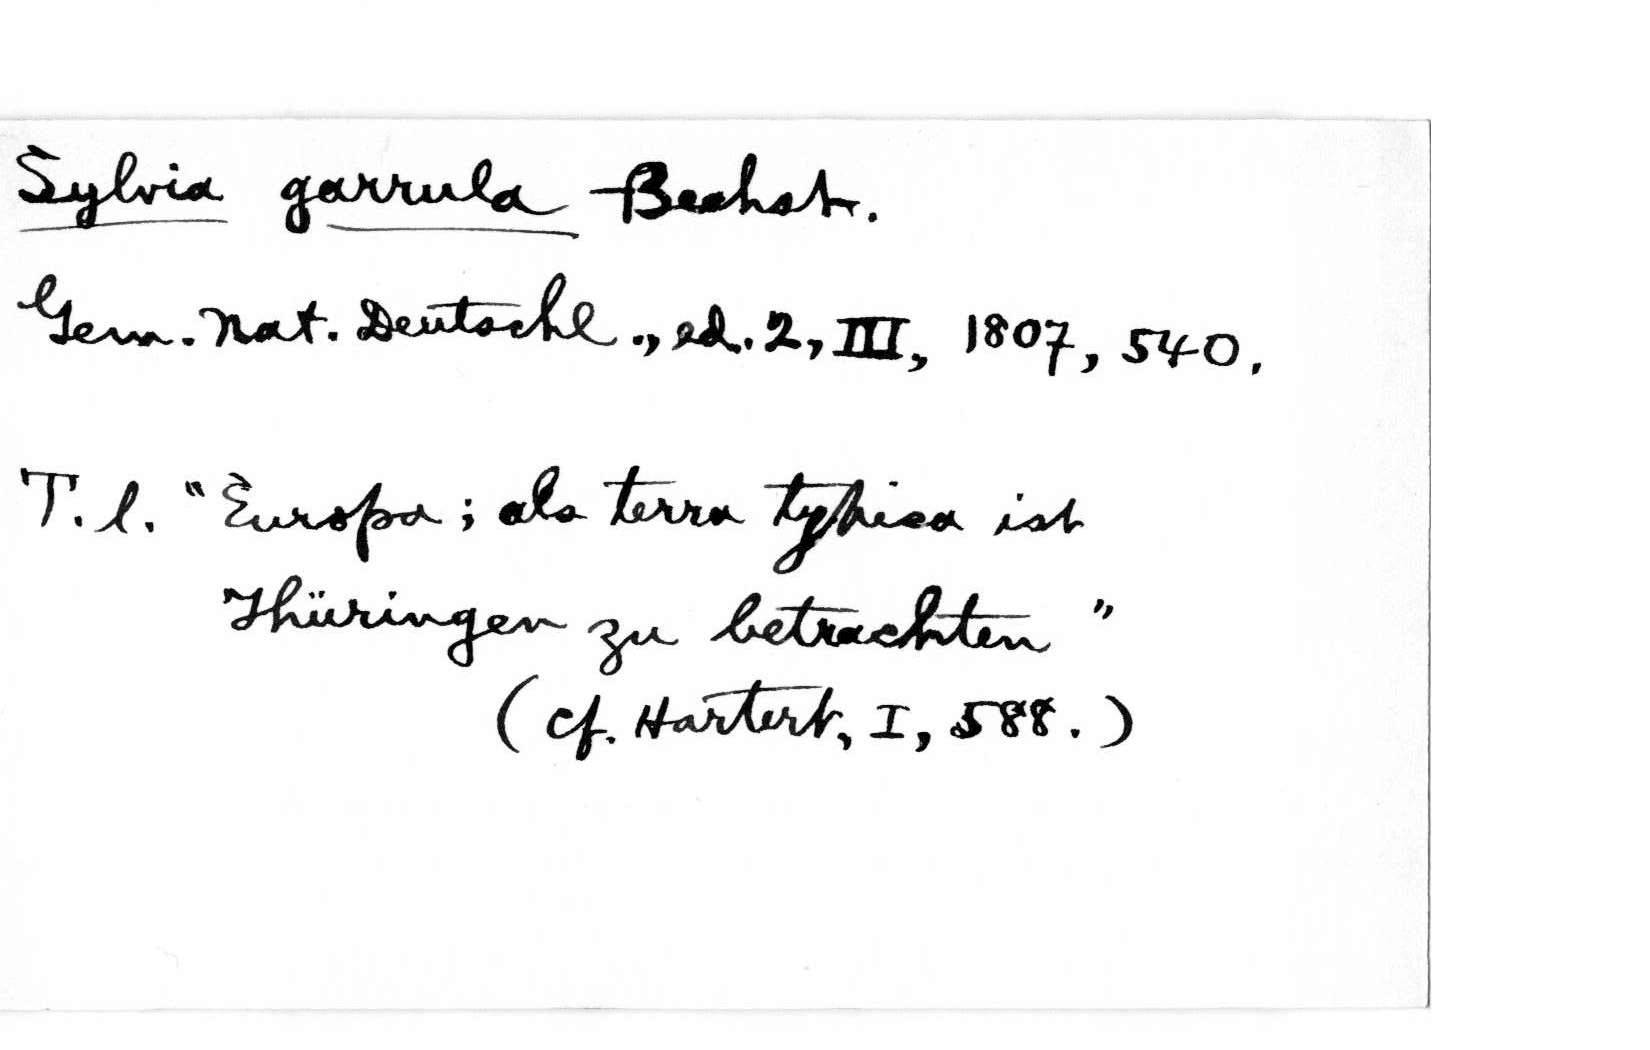 Sylvia garrula Bechst.
Gem. Nat. Deutschl., ed. 2, III, 1807, 540.
T. l. "Europa; als terra typica ist
Thüringen zu betrachten"
(cf. Hartert, I, 588.)